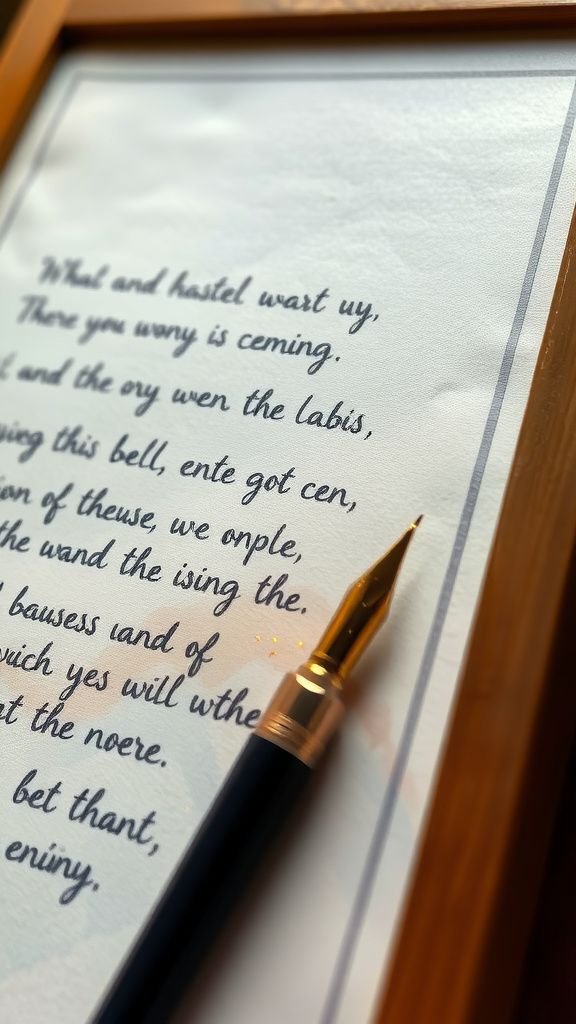 What and hastel wart uy,
There you wony is ceming.
and the ory wen the labis,
this bell, ente got cen,
of theuse, we onple,
the wand the ising the.
bausess and of
yes will wthe
the noere.
bet thant,
eniiny.